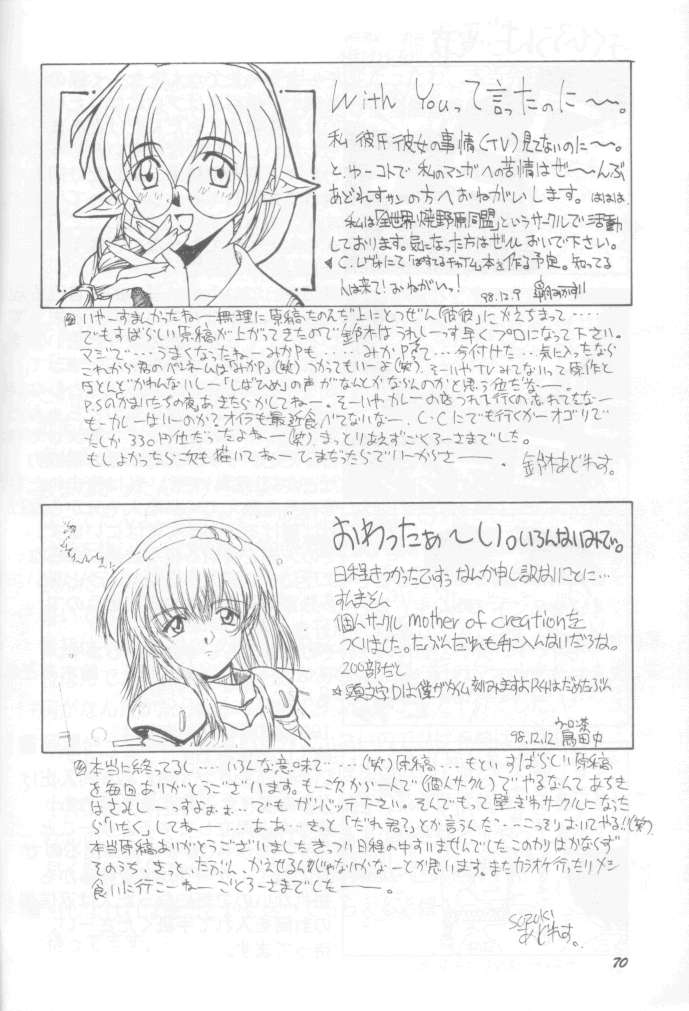 With Youって言ったのに～。
私 彼氏彼女の事情(TV)見てないのに～。
と、ゆーコトで 私のマンガへの苦情はぜ～んぶ
あどれすサンの方へおねがいします。ははは、
私は「全世界焼野原同盟」というサークルで活動
しております。気になった方はぜひおいで下さい。
本を作る予定。知ってる
人は来て!おねがいっ!
98.12.9
いやーすまんかったねー無理に原稿たのんだ上にとつぜん(彼彼)にかえちまって‥‥
でもすばらしい原稿が上がってきたので鈴木はうれしーっす早くプロになって下さい。
マジで‥‥うまくなったねーみかPも‥‥みかPって‥今付けた‥気に入ったなら
これから君のペンネームは「みかP」(笑)つかってもいーよ(笑)。そーいやTVみてないって原作と
ほとんどかわんないしー「しばひめ」の声がなんとかならんのかと思う位だなー。
P.Sのかまいたちの夜、あきたらかしてねー。そーいやカレーの店つれて行くの忘れてたなー
もーカレーはいーのか?オイラも最近食べてないなー、C・Cにでも行くかーオゴリで
たしか330円位だったよねー(笑)。まっとりあえずごくろーさまでした。
もしよかったら次も描いてねーひまだったらでいーからさ――。鈴木あどれす。
おわったぁ～い。いろんないみで。
日程きつかったですぅ なんか申し訳ないことに…
すんません
個人サークル mother of creationを
つくりました。たぶんだれも手に入んないだろな。
200部だし
98.12.12
本当に終ってるし‥‥いろんな意味で‥‥(笑)原稿‥‥もといすばらしい原稿
を毎回ありがとうございます。もー次から一人で(個人サークル)でやるなんてあちき
はさみしーっすよぉぉぉ‥でもガンバッテ下さい。そんでもって壁ぎわサークルになった
ら「いたく」してねー‥‥ああ‥きっと「だれ君?」とか言うんだ‥‥こっそりおいてやる!!(笑)
本当原稿ありがとうございましたきっつい日程の中すいませんでしたこのかりはかなくず
そのうち、きっと、たぶん、かえせるんじゃないかなーとか思います。またカラオケ行ったりメシ
食いに行こーねーごくろーさまでした――。
suzuki
あどれす。
70